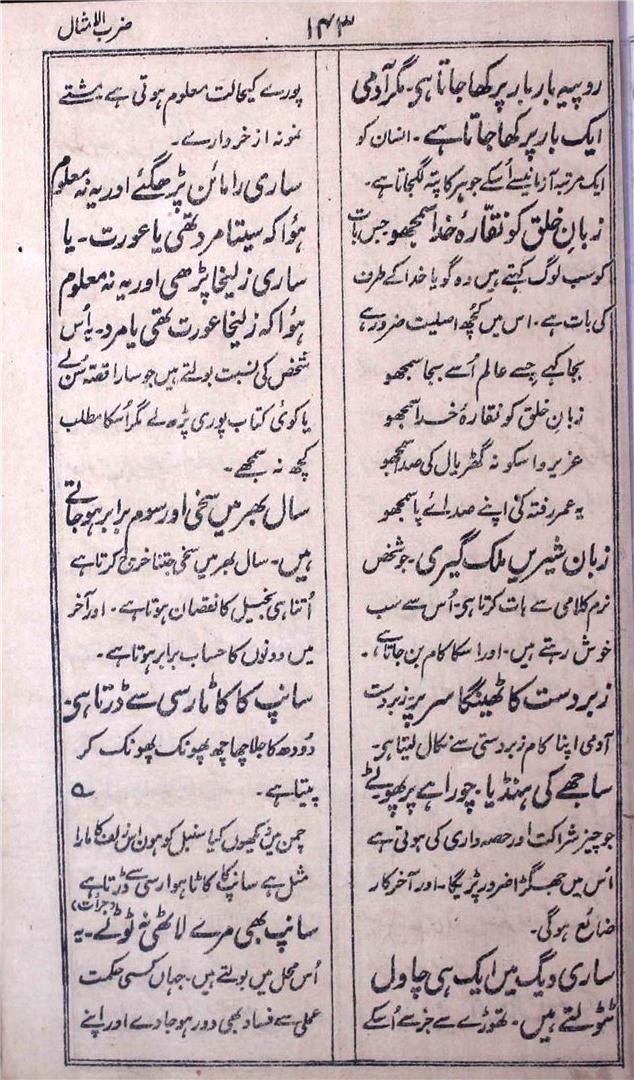 ضرب الامثال
۱۴۳
روپیہ بار بار پرکھا جاتا ہی۔ مگر آدمی
ایک بار پرکھا جاتا ہے۔ انسان کو
ایک مرتبہ آزمانیسے اُسکے جوہر کا پتہ لگجاتا ہے۔
زبانِ خلق کو نقّارۂ خدا سمجھو جس بات
کو سب لوگ کہتے ہیں وہ گویا خدا کے طرف
کی بات ہے۔ اس میں کُچھ اصلیت ضرور ہے
بجا کہے جسے عالم اُسے بجا سمجھو
زبانِ خلق کو نقارۂ خدا سمجھو
عزیزو اسکو نہ گھڑیال کی صدا سمجھو
یہ عمر رفتہ کی اپنے صدائے پا سمجھو
زبان شیریں ملک گیری۔ جو شخص
نرم کلامی سے بات کرتا ہی۔ اُس سے سب
خوش رہتے ہیں۔ اور اسکا کام بن جاتا ہے۔
زبردست کا ٹھینگا سر پر۔ زبردست
آدمی اپنا کام زبردستی سے نکال لیتا ہی۔
ساجھے کی ہنڈیا۔ چوراہے پر پھوٹے
جو چیز شراکت اور حصہ داری کی ہوتی ہے
اُس میں جھگڑا ضرور پڑیگا۔ اور آخر کار
ضائع ہوگی۔
ساری دیگ میں ایک ہی چاول
ٹٹولتے ہیں۔ تھوڑے سے جز سے اُسکے
پورے کیحالت معلوم ہوتی ہے مشتے
نمونہ از خروارے۔
ساری رامائن پڑھ گئے اور یہ نہ معلوم
ہؤا کہ سیتا مرد تھی یا عورت۔ یا
ساری زلیخا پڑھی اور یہ نہ معلوم
ہؤا کہ زلیخا عورت تھی یا مرد۔ یہ اُس
شخص کی نسبت بولتے ہیں جو سارا قصہ سُن لے
یا کوئی کتاب پوری پڑھ لے مگر اُسکا مطلب
کچھ نہ سمجھے۔
سال بھر میں سخی اور سوم برابر ہو جاتے
ہیں۔ سال بھر میں سخی جتنا خرچ کرتا ہے
اُتنا ہی بخیل کا نقصان ہوتا ہے۔ اور آخر
میں دونوں کا حساب برابر ہوتا ہے۔
سانپ کا کاٹا رسی سے ڈرتا ہی۔
دودھ کا جلا چھاچھ پھونک پھونک کر
پیتا ہے۔
چمن میں دیکھوں کیا سنبل کو ہوں اس زلف کا مارا
مثل ہے سانپ کا کاٹا ہوا رسی سے ڈرتا ہے
(جرأت)
سانپ بھی مرے لاٹھی نہ ٹوٹے۔ یہ
اُس محل میں بولتے ہیں۔ جہاں کسی حکمت
عملی سے فساد بھی دور ہو جاوے اور اپنے